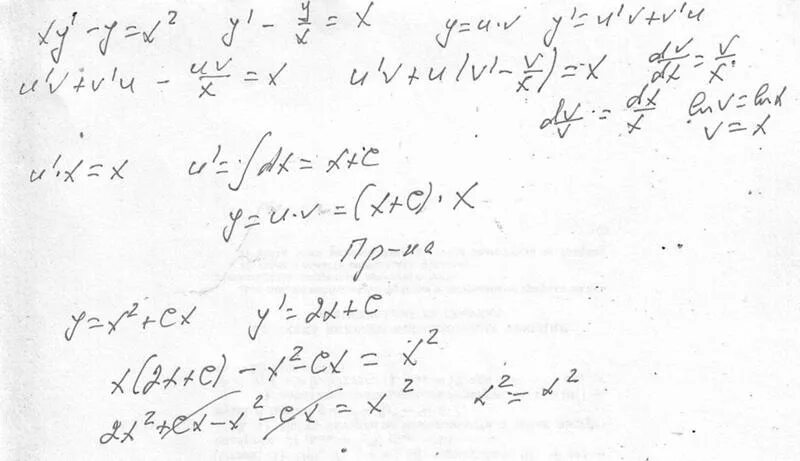 xy' - y = x² y' - y/x = x y = u·v y' = u'v + v'u
u'v + v'u - uv/x = x u'v + u(v' - v/x) = x dv/dx = v/x
dv/v = dx/x ln v = ln x
v = x
u'·x = x u' = ∫dx = x + C
y = u·v = (x + C)·x
Пр-ка
y = x² + Cx y' = 2x + C
x(2x + C) - x² - Cx = x²
2x² + Cx - x² - Cx = x² x² = x²